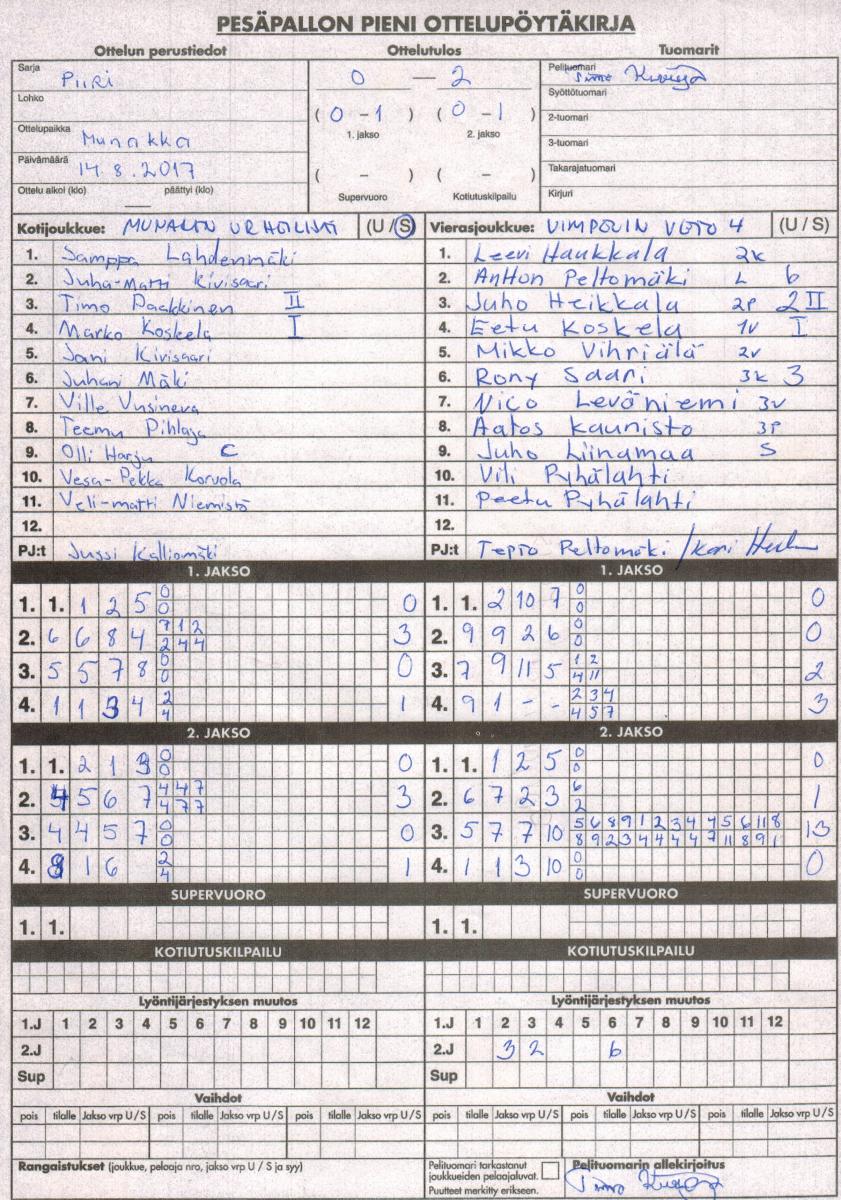 PESÄPALLON PIENI OTTELUPÖYTÄKIRJA
Ottelun perustiedot Ottelutulos Tuomarit
Sarja Piiri
Lohko
Ottelupaikka Munakka
Päivämäärä 14.8.2017
Ottelu alkoi (klo) — päättyi (klo)
0 — 2
( 0 - 1 ) ( 0 - 1 )
1. jakso 2. jakso
( - ) ( - )
Supervuoro Kotiutuskilpailu
Pelituomari Timo
Syöttötuomari
2-tuomari
3-tuomari
Takarajatuomari
Kirjuri
Kotijoukkue: (U / S)
1. Samppa Lahdenmäki
2. Juha-Matti Kivisaari
3. Timo Paakkinen II
4. Marko Koskela I
5. Jani Kivisaari
6. Juhani Mäki
7. Ville Uusineva
8. Teemu Pihlaja
9. Olli Harju C
10. Vesa-Pekka Korvola
11. Veli-matti Niemistö
12.
PJ:t Jussi Kalliomäki
Vierasjoukkue: VIMPELIN VETO 4 (U / S)
1. Leevi Haukkala 2k
2. Antton Peltomäki L 6
3. Juho Heikkala 2P 2 II
4. Eetu Koskela 1V I
5. Mikko Vihriälä 2v
6. Rony Saari 3k 3
7. Nico Leväniemi 3v
8. Aatos Kaunisto 3P
9. Juho Liinamaa S
10. Vili Pyhälahti
11. Peetu Pyhälahti
12.
PJ:t Tepio Peltomäki /
1. JAKSO
1. 1. 1 2 5 0 0
0
2. 6 6 8 4 7 1 2 3
2 4 4
3. 5 5 7 8 0 0
0
4. 1 1 3 4 2 1
4
1. JAKSO
1. 1. 2 10 7 0 0
0
2. 9 9 2 6 0 0
0
3. 7 9 11 5 1 2 2
4 11
4. 9 1 - - 2 3 4 3
4 5 7
2. JAKSO
1. 1. 2 1 3 0 0
0
2. 4 5 6 7 4 4 7 3
4 7 7
3. 4 4 5 7 0 0
0
4. 8 1 6 2 1
4
2. JAKSO
1. 1. 1 2 5 0 0
0
2. 6 7 2 3 6 1
2
3. 5 7 7 10 5 6 8 9 1 2 3 4 4 5 6 11 8 13
8 9 2 3 4 4 4 4 7 11 8 9 1
4. 1 1 3 10 0 0
0
SUPERVUORO SUPERVUORO
1. 1. 1. 1.
KOTIUTUSKILPAILU KOTIUTUSKILPAILU
Lyöntijärjestyksen muutos
1.J 1 2 3 4 5 6 7 8 9 10 11 12
2.J
Sup
Lyöntijärjestyksen muutos
1.J 1 2 3 4 5 6 7 8 9 10 11 12
2.J 3 2 6
Sup
Vaihdot Vaihdot
pois tilalle Jakso vrp U / S pois tilalle Jakso vrp U / S pois tilalle Jakso vrp U / S
pois tilalle Jakso vrp U / S pois tilalle Jakso vrp U / S pois tilalle Jakso vrp U / S
Rangaistukset (joukkue, pelaaja nro, jakso vrp U / S ja syy)
Pelituomari tarkastanut
joukkueiden pelaajaluvat.
Puutteet merkitty erikseen.
Pelituomarin allekirjoitus
Timo